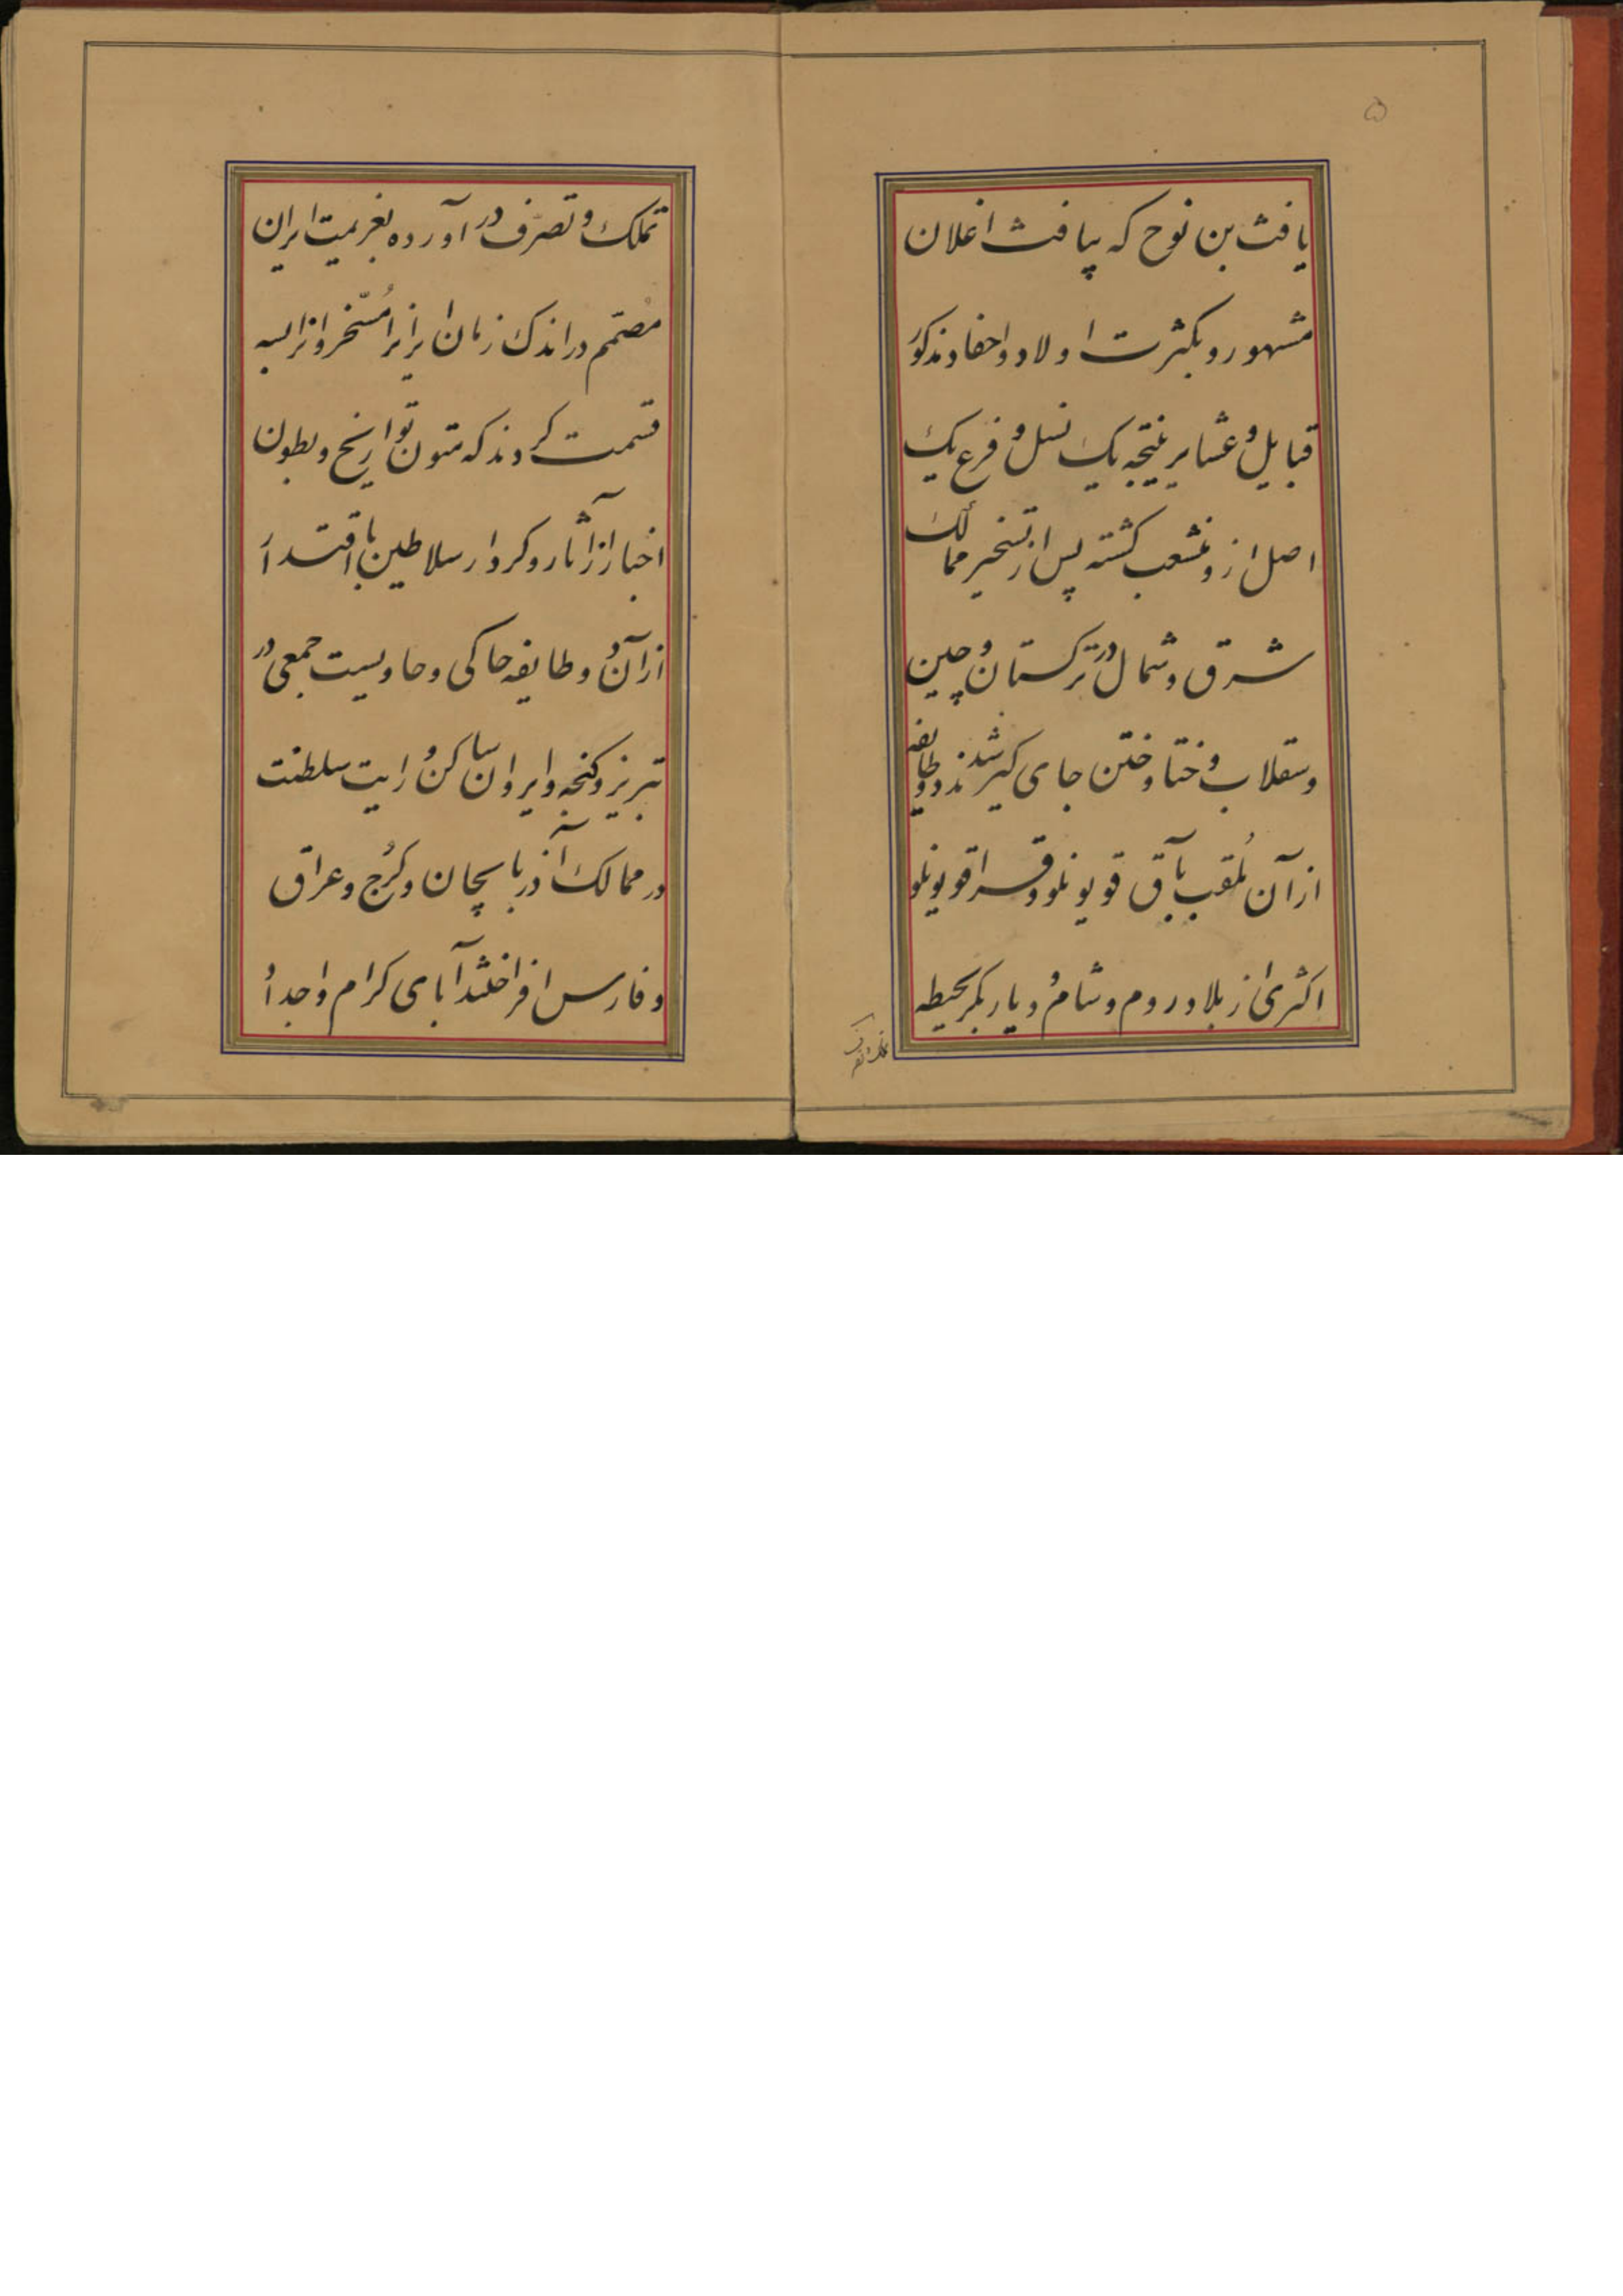 ۵
یافث بن نوح که بیافث اغلان
مشهور و بکثرت اولاد و احفاد مذکور
قبایل و عشایر نتیجه یک نسل و فرع یک
اصل ازو منشعب کشته پس از تسخیر ممالک
شرق و شمال در ترکستان و چین
وسقلاب و ختا و ختن جای کیر شدند و دو طایفه
از آن ملقب بآق قویونلو و قراقویونلو
اکثری از بلاد روم و شام و دیار بکر بحیطه
تملک و تصرف
تملک و تصرّف در آورده بعزیمت ایران
مصمّم در اندک زمان ایرانرا مُسّخر و
قسمت کردند که متون تواریخ و بطون
اخبار از آثار و کردار سلاطین با اقتدار
از آن دو طایفه حاکی و حاویست جمعی در
تبریز و کنجه و ایروان ساکن و رایت سلطنت
در ممالک آذربایجان و کُرج و عراق
و فارس افراختند آبای کرام و اجداد